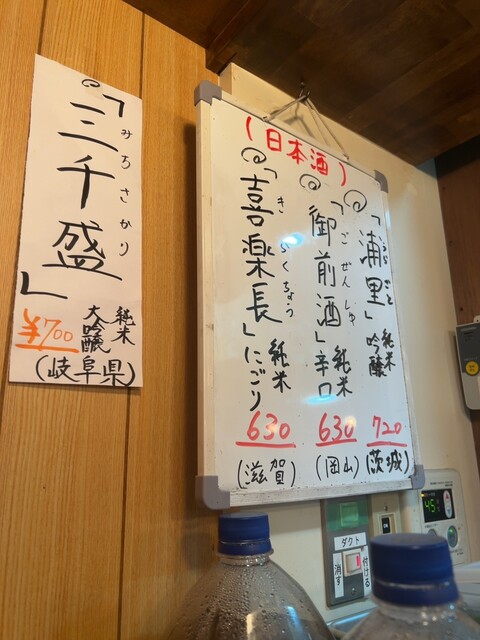 「三千盛」
みちさかり
純米
大吟醸
¥700
(岐阜県)
(日本酒)
「浦里」純米吟醸
うらざと
720
(茨城)
「御前酒」純米辛口
ごぜんしゅ
630
(岡山)
「喜楽長」純米にごり
きらくちょう
630
(滋賀)
ダクト
消す
付ける
45